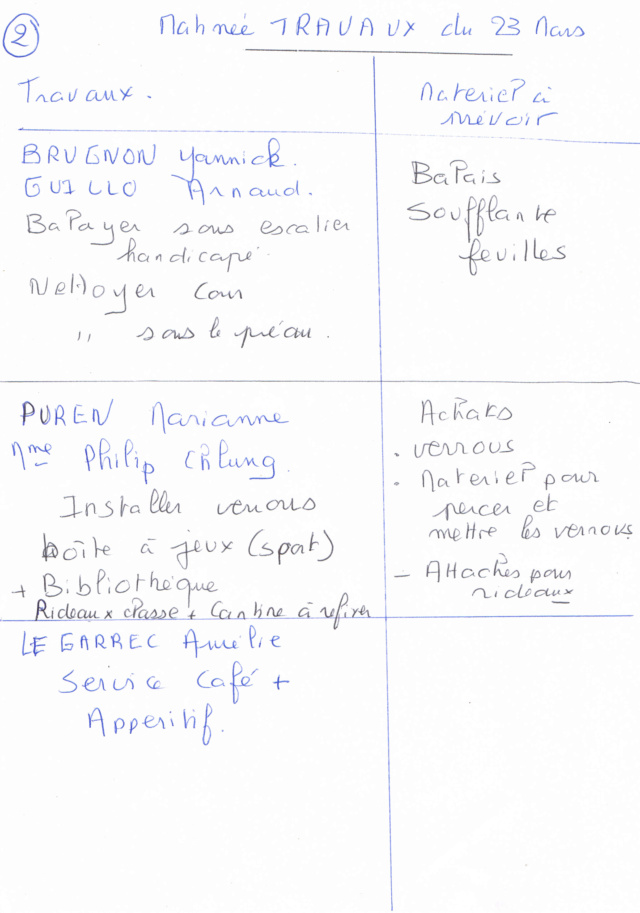 2
Matinée TRAVAUX du 23 Mars
Travaux.
Materiel à
prévoir
BRUGNON Yannick.
GUILLO Arnaud.
Balayer sous escalier
handicapé.
Nettoyer Cour
" sous le préau.
Balais
Soufflante
feuilles
PUREN Marianne
Mme Philip
Installer verrous
boîte à jeux (sport)
+ Bibliothèque
Rideaux classe + Cantine à refixer
Achats
. verrous
. Materiel pour
percer et
mettre les verrous
- Attaches pour
rideaux
LE GARREC Amélie
Service Café +
Apperitif.